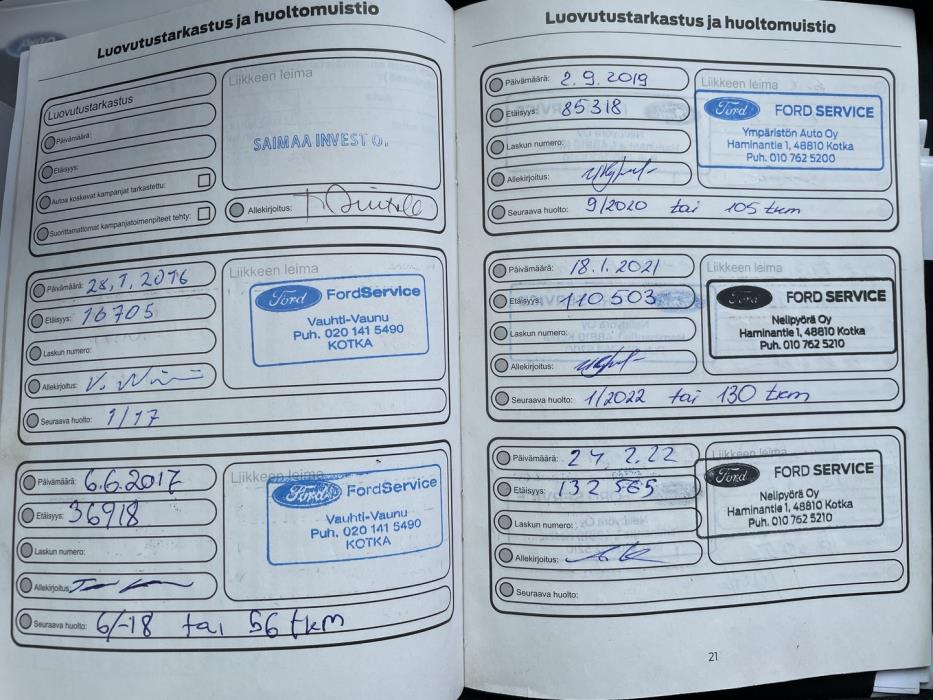 Luovutustarkastus ja huoltomuistio
Luovutustarkastus
Päivämäärä:
Etäisyys:
Autoa koskevat kampanjat tarkastettu:
Suorittamattomat kampanjatoimenpiteet tehty:
Liikkeen leima
SAIMAA INVEST O.
Allekirjoitus:
Päivämäärä: 28.1.2016
Etäisyys: 16705
Laskun numero:
Allekirjoitus:
Seuraava huolto: 1/17
Liikkeen leima
Ford FordService
Vauhti-Vaunu
Puh. 020 141 5490
KOTKA
Päivämäärä: 6.6.2017
Etäisyys: 36918
Laskun numero:
Allekirjoitus:
Seuraava huolto: 6/-18 tai 56 tkm
Liikkeen leima
Ford FordService
Vauhti-Vaunu
Puh. 020 141 5490
KOTKA
Luovutustarkastus ja huoltomuistio
Päivämäärä: 2.9.2019
Etäisyys: 85318
Laskun numero:
Allekirjoitus:
Seuraava huolto: 9/2020 tai 105 tkm
Liikkeen leima
Ford FORD SERVICE
Ympäristön Auto Oy
Haminantie 1, 48810 Kotka
Puh. 010 762 5200
Päivämäärä: 18.1.2021
Etäisyys: 110503
Laskun numero:
Allekirjoitus:
Seuraava huolto: 1/2022 tai 130 tkm
Liikkeen leima
Ford FORD SERVICE
Nelipyörä Oy
Haminantie 1, 48810 Kotka
Puh. 010 762 5210
Päivämäärä: 24 2.22
Etäisyys: 132 565
Laskun numero:
Allekirjoitus:
Seuraava huolto:
Liikkeen leima
Ford FORD SERVICE
Nelipyörä Oy
Haminantie 1, 48810 Kotka
Puh. 010 762 5210
21